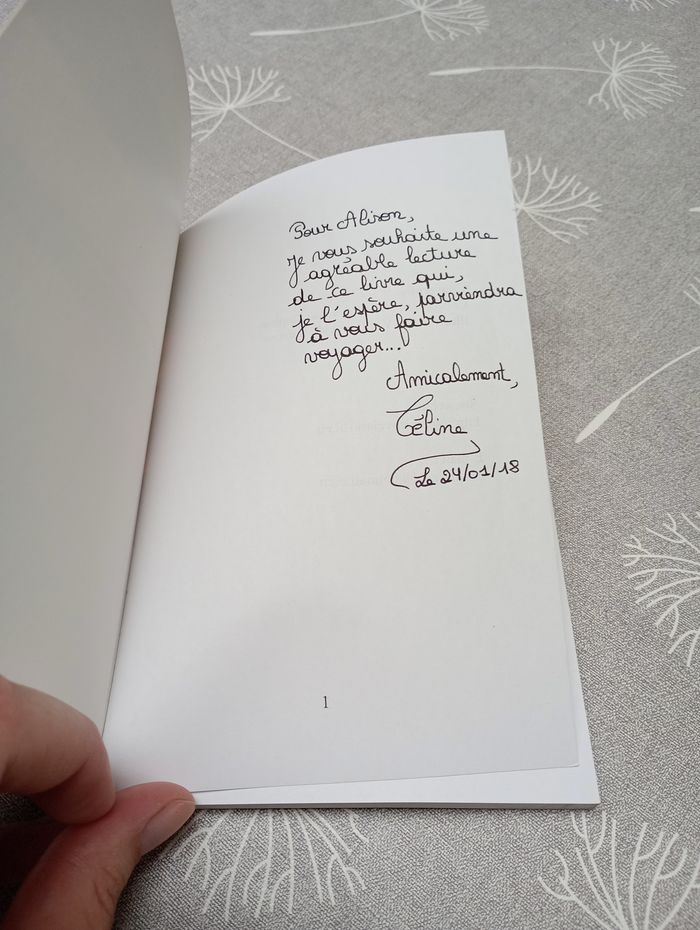 Pour Alison,
je vous souhaite une
agréable lecture
de ce livre qui,
je l'espère, parviendra
à vous faire
voyager...
Amicalement,
Céline
Le 24/01/18
1